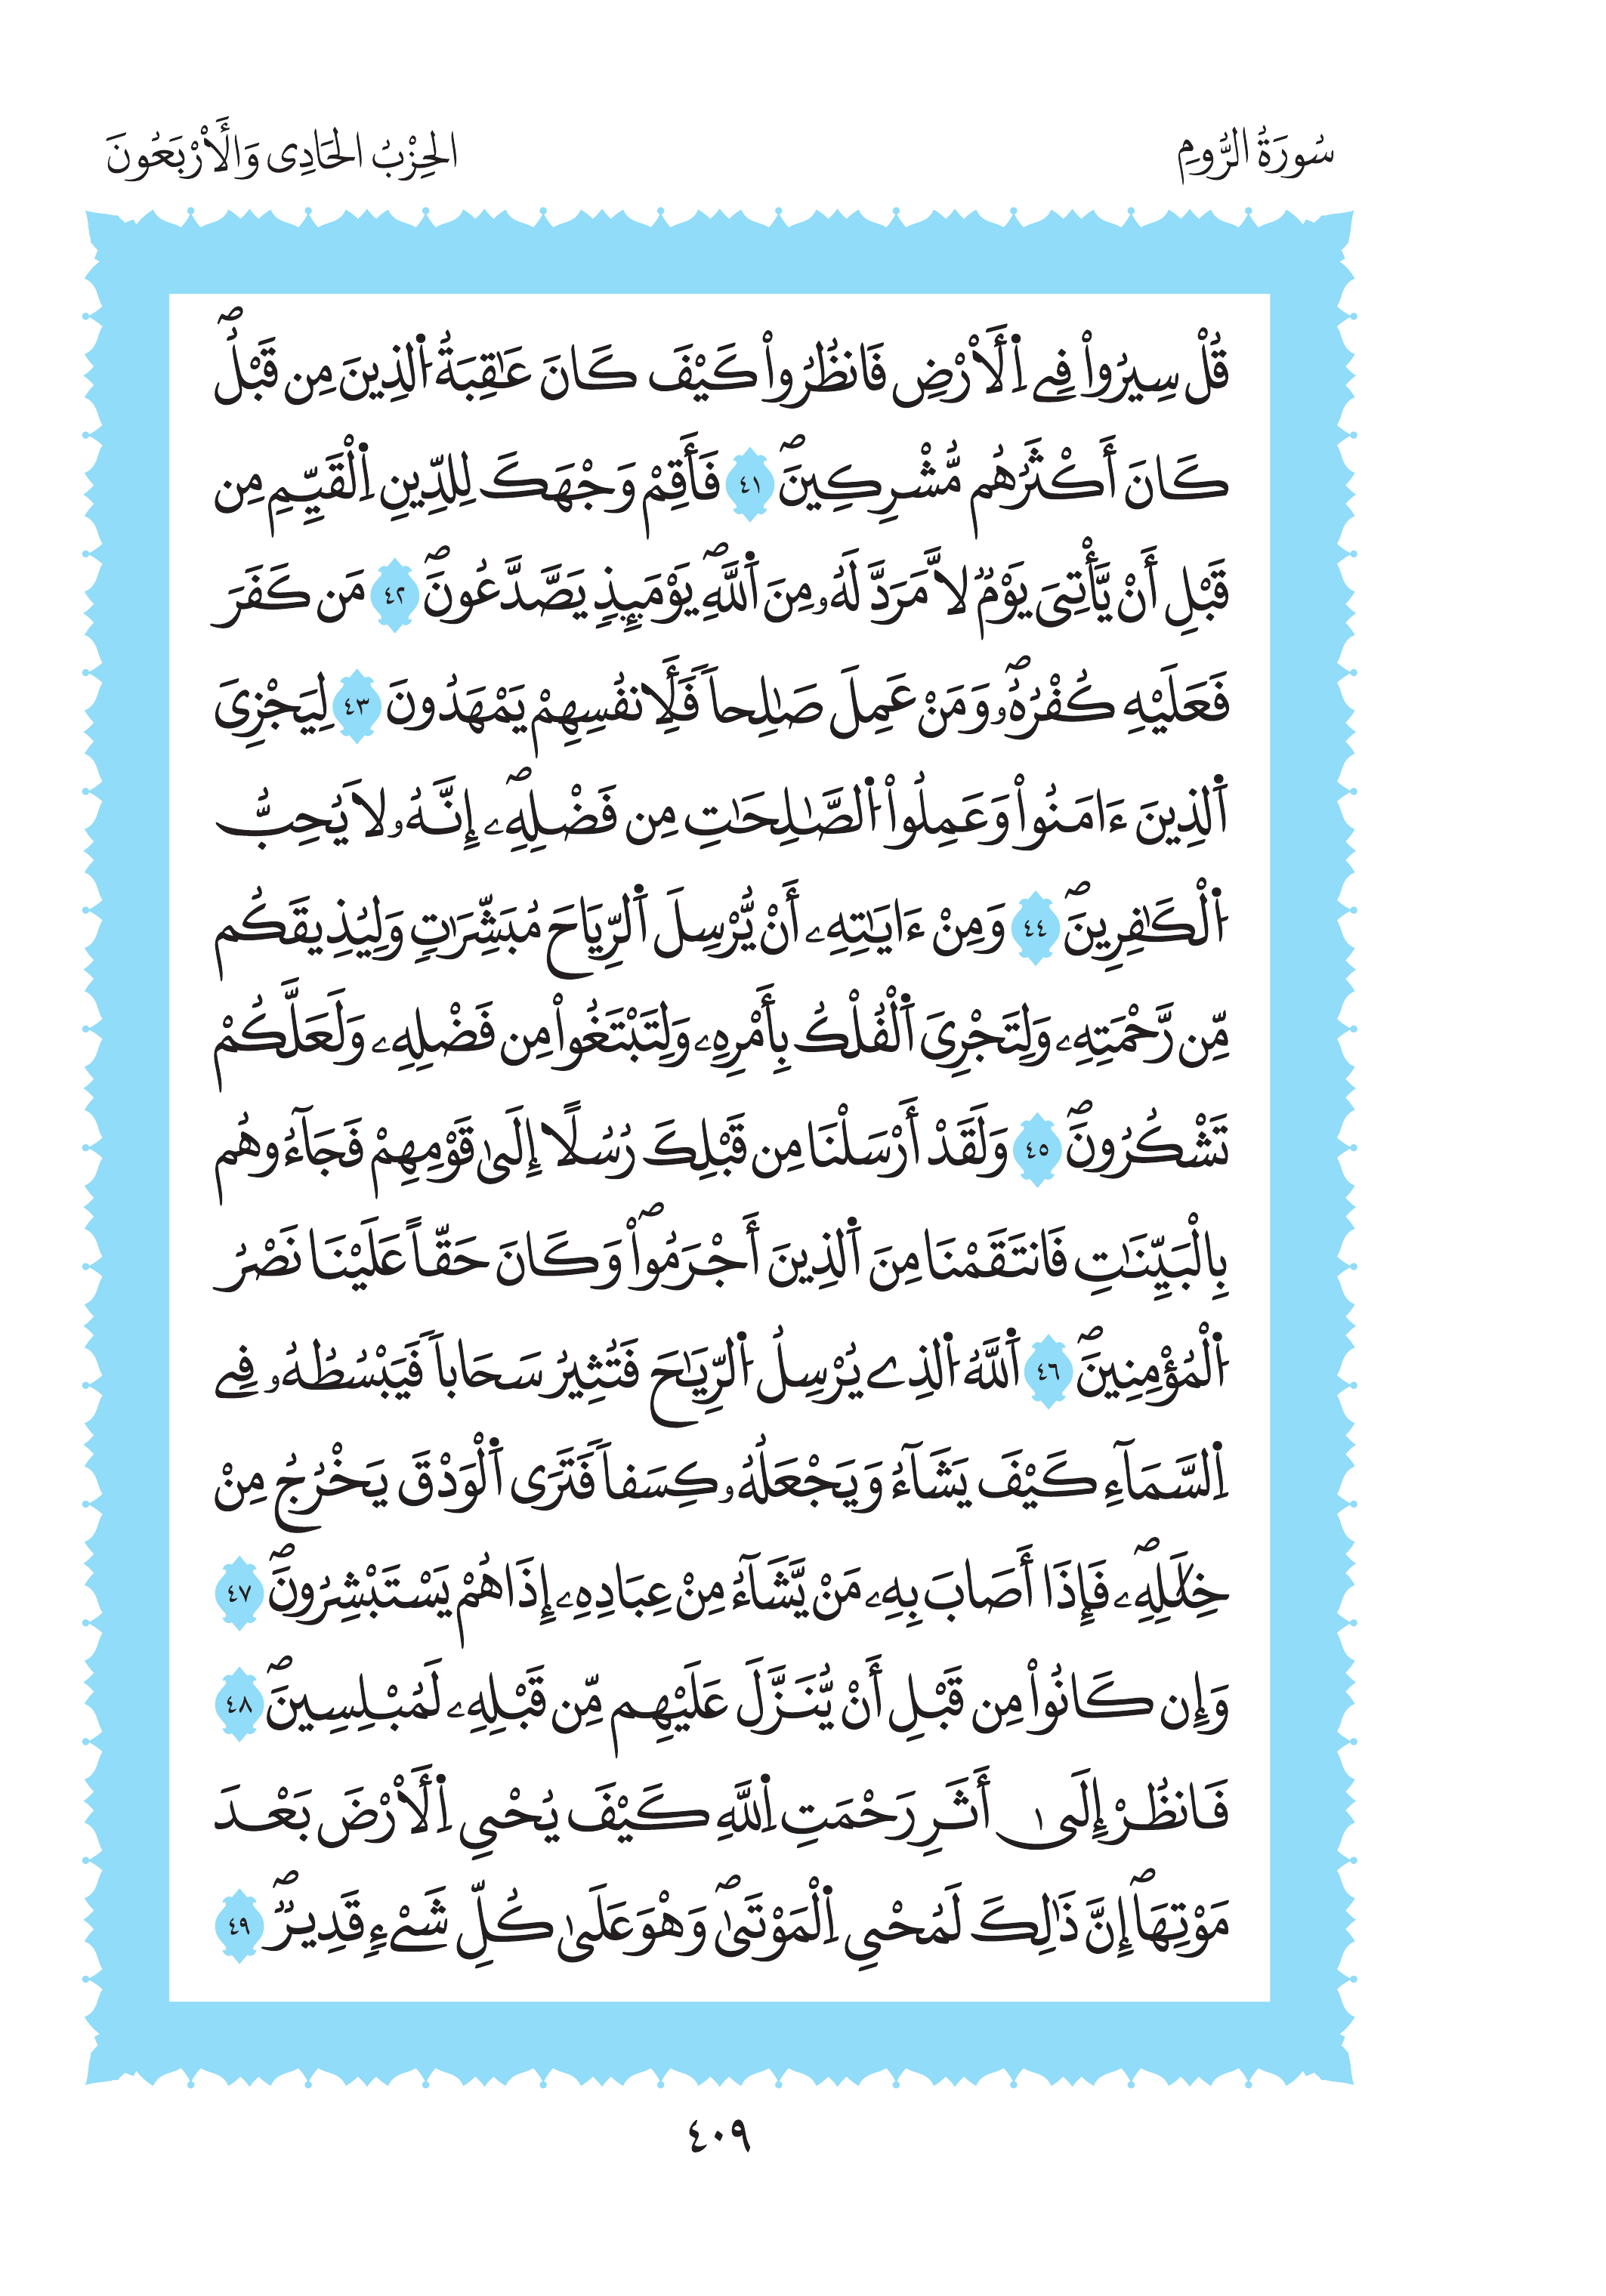 سُورَةُ الرُّومِ
الحِزْبُ الحَادِى وَالَأَرْبَعُونَ
قُلْ سِيرُواْ فِے اِ۬لَارْضِ فَانظُرُواْ كَيْفَ كَانَ عَٰقِبَةُ اُ۬لذِينَ مِن قَبْلُۖ
كَانَ أَكْثَرُهُم مُّشْرِكِينَۖ ٤١ فَأَقِمْ وَجْهَكَ لِلدِّينِ اِ۬لْقَيِّمِ مِن
قَبْلِ أَنْ يَّأْتِىَ يَوْمٌ لاَّ مَرَدَّ لَهُۥ مِنَ اَ۬للَّهِۖ يَوْمَئِذٍ يَصَّدَّعُونَۖ ٤٢ مَن كَفَرَ
فَعَلَيْهِ كُفْرُهُۥۖ وَمَنْ عَمِلَ صَٰلِحاٗ فَلِأَنفُسِهِمْ يَمْهَدُونَ ٤٣ لِيَجْزِىَ
اَ۬لذِينَ ءَامَنُواْ وَعَمِلُواْ اُ۬لصَّٰلِحَٰتِ مِن فَضْلِهِۦۖ إِنَّهُۥ لاَ يُحِبُّ
اُ۬لْكَٰفِرِينَۖ ٤٤ وَمِنْ ءَايَٰتِهِۦ أَنْ يُّرْسِلَ اَ۬لرِّيَاحَ مُبَشِّرَٰتٍ وَلِيُذِيقَكُم
مِّن رَّحْمَتِهِۦ وَلِتَجْرِىَ اَ۬لْفُلْكُ بِأَمْرِهِۦ وَلِتَبْتَغُواْ مِن فَضْلِهِۦ وَلَعَلَّكُمْ
تَشْكُرُونَۖ ٤٥ وَلَقَدْ أَرْسَلْنَا مِن قَبْلِكَ رُسُلًا إِلَىٰ قَوْمِهِمْ فَجَآءُوهُم
بِالْبَيِّنَٰتِ فَانتَقَمْنَا مِنَ اَ۬لذِينَ أَجْرَمُواْۖ وَكَانَ حَقّاً عَلَيْنَا نَصْرُ
اُ۬لْمُؤْمِنِينَۖ ٤٦ اَ۬للَّهُ اُ۬لذِے يُرْسِلُ اُ۬لرِّيَٰحَ فَتُثِيرُ سَحَاباٗ فَيَبْسُطُهُۥ فِے
اِ۬لسَّمَآءِ كَيْفَ يَشَآءُ وَيَجْعَلُهُۥ كِسَفاٗ فَتَرَى اَ۬لْوَدْقَ يَخْرُجُ مِنْ
خِلَٰلِهِۦۖ فَإِذَا أَصَابَ بِهِۦ مَنْ يَّشَآءُ مِنْ عِبَادِهِۦ إِذَا هُمْ يَسْتَبْشِرُونَۖ ٤٧
وَإِن كَانُواْ مِن قَبْلِ أَنْ يُّنَزَّلَ عَلَيْهِم مِّن قَبْلِهِۦ لَمُبْلِسِينَۖ ٤٨
فَانظُرْ إِلَىٰ أَثَرِ رَحْمَتِ اِ۬للَّهِ كَيْفَ يُحْىِ اِ۬لَأَرْضَ بَعْدَ
مَوْتِهَاۖ إِنَّ ذَٰلِكَ لَمُحْىِ اِ۬لْمَوْتَىٰۖ وَهْوَ عَلَىٰ كُلِّ شَےْءٍ قَدِيرٌۖ ٤٩
٤٠٩